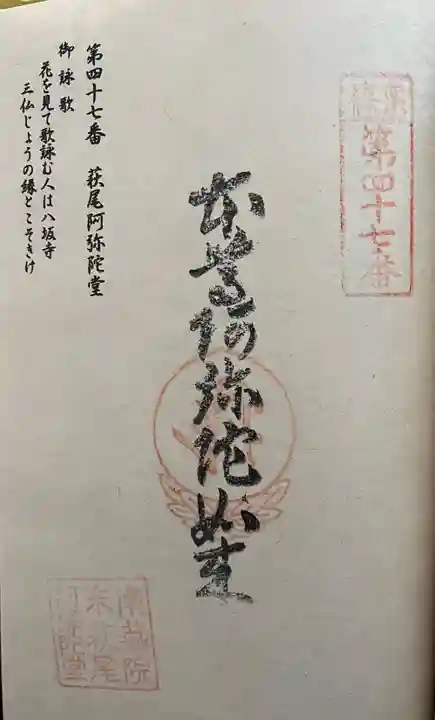 篠栗
第四十七番
本尊阿弥陀如来
第四十七番　萩尾阿弥陀堂
御詠歌
花を見て歌詠む人は八坂寺
三仏じょうの縁とこそきけ
南蔵院
萩尾
阿弥陀堂